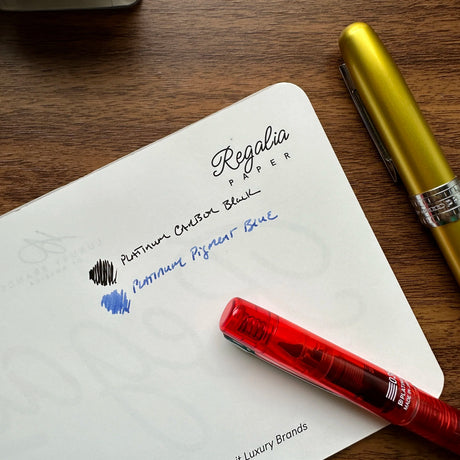 Regalia
PAPER
PLATINUM CARBON Black
PLATINUM Pigment Blue
Luxury Brands